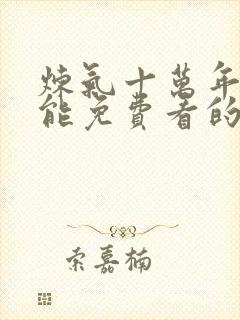 煉氣十萬年
能免費看的
索嘉楠